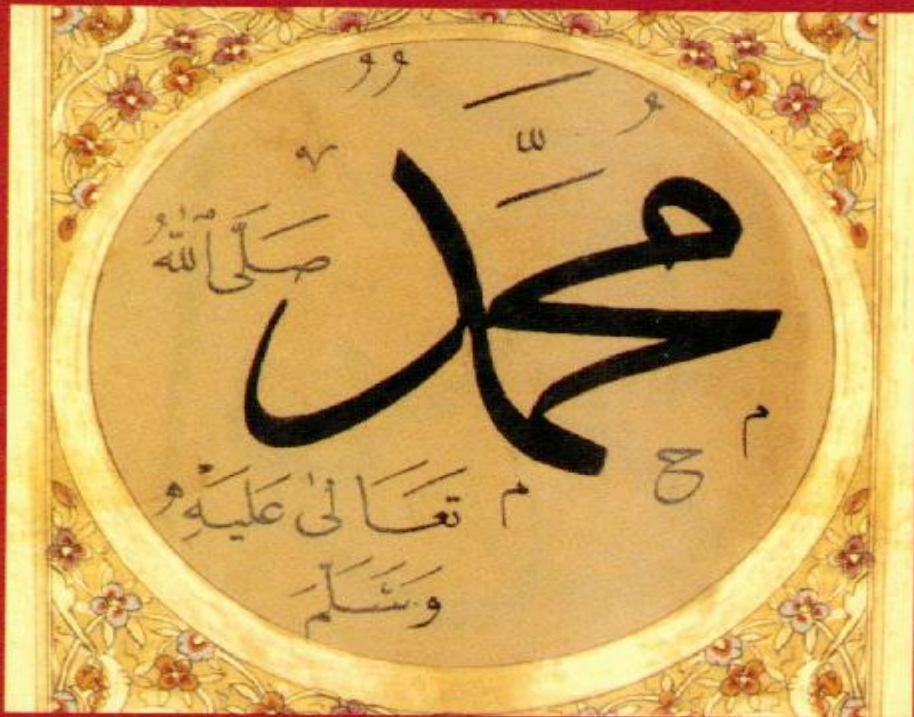 مُحَمَّدٌ
صَلَّى اللّٰهُ
تَعَالٰى عَلَيْهِ
وَسَلَّمَ